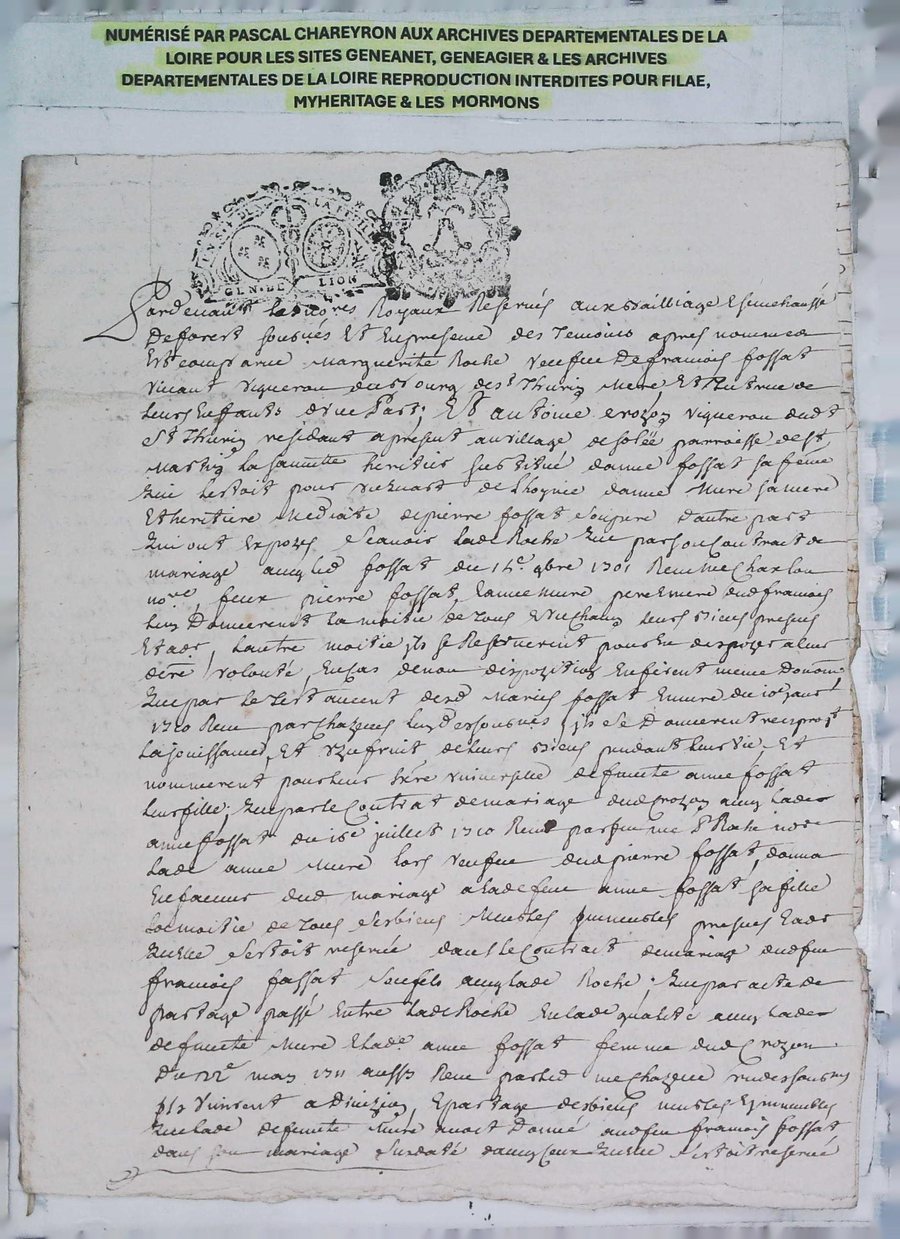 NUMÉRISÉ PAR PASCAL CHAREYRON AUX ARCHIVES DEPARTEMENTALES DE LA
LOIRE POUR LES SITES GENEANET, GENEAGIER & LES ARCHIVES
DEPARTEMENTALES DE LA LOIRE REPRODUCTION INTERDITES POUR FILAE,
MYHERITAGE & LES MORMONS
GEN. DE LION
Pardevant les nores Royaux Reservés aux Bailliage & senechaussé
de forest sousnés Et En presence des temoins apres nommes
Est comparue Marguerite Roche veufve de francois fossat
vivant vigneron du bourg de st Thurin mere Et tutrice de
leurs Enfants d'une Part; Et antoine crozon vigneron dudt
St Thurin residant a présent au village de parroisse de st
Martin la sauveté heritier substitué danne fossat sa feme
qui lestoit pour danne Mure sa mere
Et heritiere mediate de pierre fossat son pere d'autre part
qui ont Exposes scavoir lade Roche que par son Contract de
mariage avec led fossat du 14e 9bre 1701 Receu Me Charlon
nore, feux pierre fossat, & anne mure pere & mere dud francois
luy Donnerent la moitié de tous & un chacun leurs Biens presens
Et adr, lautre moitié ils se Reserverent pour En disposer a leur
dere volonté, En cas de non disposition En firent meme Donaon
que par le testament desd Mariés fossat & mure du 10e janr
1710 Receu par Chazeus lun des sousnés ils se Donnerent reciproqt
la jouissance Et Uzufruit de leurs Biens pendant leur vie, Et
nommerent pour leur here universelle defuncte anne fossat
leur fille, que par le Contrat de mariage dud crozon avec lade
anne fossat du 16e juillet 1710 Receu par feu me Roche nore
lade anne Mure lors veufve dud pierre fossat, donna
En faveur dud mariage a lade feue anne fossat sa fille
la moitié de tous ses biens Meubles jmmeubles presens & adr
quelle sestoit reservée dans le Contrat de mariage dud feu
francois fossat son fils avec lade Roche; que par acte de
partage passé Entre lade Roche En lade qualité avec lade
defuncte Mure & lade anne fossat femme dud Crozon
Du 22e may 1711 aussy Receu par led me Chazeus lun des sousnés
ils vinrent a Divizion, & partage des biens meubles & jmmeubles
que lade defuncte Mure avoit Donné aud feu francois fossat
dans son mariage Susdaté davec ceux quelle sestoit reservée